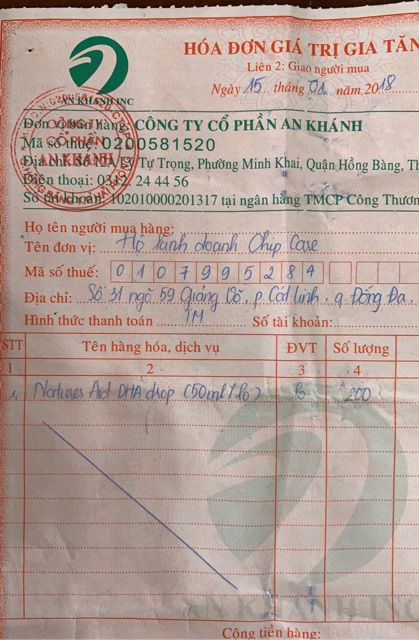 HÓA ĐƠN GIÁ TRỊ GIA TĂN
Liên 2: Giao người mua
Ngày 15 tháng 01 năm 2018
AN KHANH INC
Đơn vị bán hàng: CÔNG TY CỔ PHẦN AN KHÁNH
Mã số thuế: 0200581520
Địa chỉ: Số Tự Trọng, Phường Minh Khai, Quận Hồng Bàng, Th
Điện thoại: 24 44 56
Số tài khoản: 102010000201317 tại ngân hàng TMCP Công Thươn
CÔNG TY
CỔ PHẦN
AN KHÁNH
Họ tên người mua hàng:
Tên đơn vị: Hộ kinh doanh Chip Case
Mã số thuế: 0107995284
Địa chỉ: Số 31 ngõ 59 Giảng Võ, p. Cát Linh, q. Đống Đa.
Hình thức thanh toán TM Số tài khoản:
STT Tên hàng hóa, dịch vụ ĐVT Số lượng
1 2 3 4
1. Natures Aid DHA drop (50ml/lọ) lọ 200
AN KHANH INC
Cộng tiền hàng: